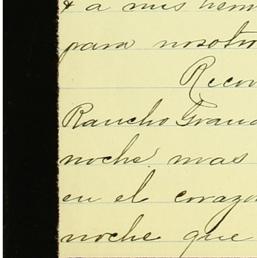 & a mis herm
para nosotro
Recor
Rancho Grand
noche mas
en el corazo
noche que